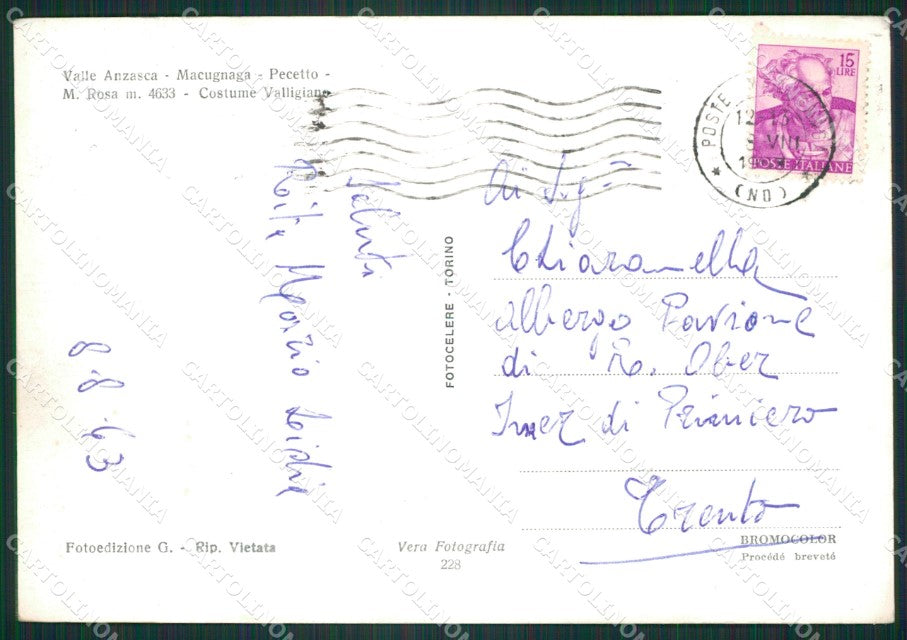 Valle Anzasca - Macugnaga - Pecetto -
M. Rosa m. 4633 - Costume Valligiano
15
LIRE
POSTE ITALIANE
POSTE
12
VIII
19
(NO)
Saluti
Rita Mario Lidia
8.8.63
FOTOCELERE - TORINO
Ai Sig.ri
Chiaramella
Albergo Pavione
di R. Ober
Imer di Primiero
Trento
Fotoedizione G. - Rip. Vietata
Vera Fotografia
228
BROMOCOLOR
Procédé breveté
CARTOLINOMANIA